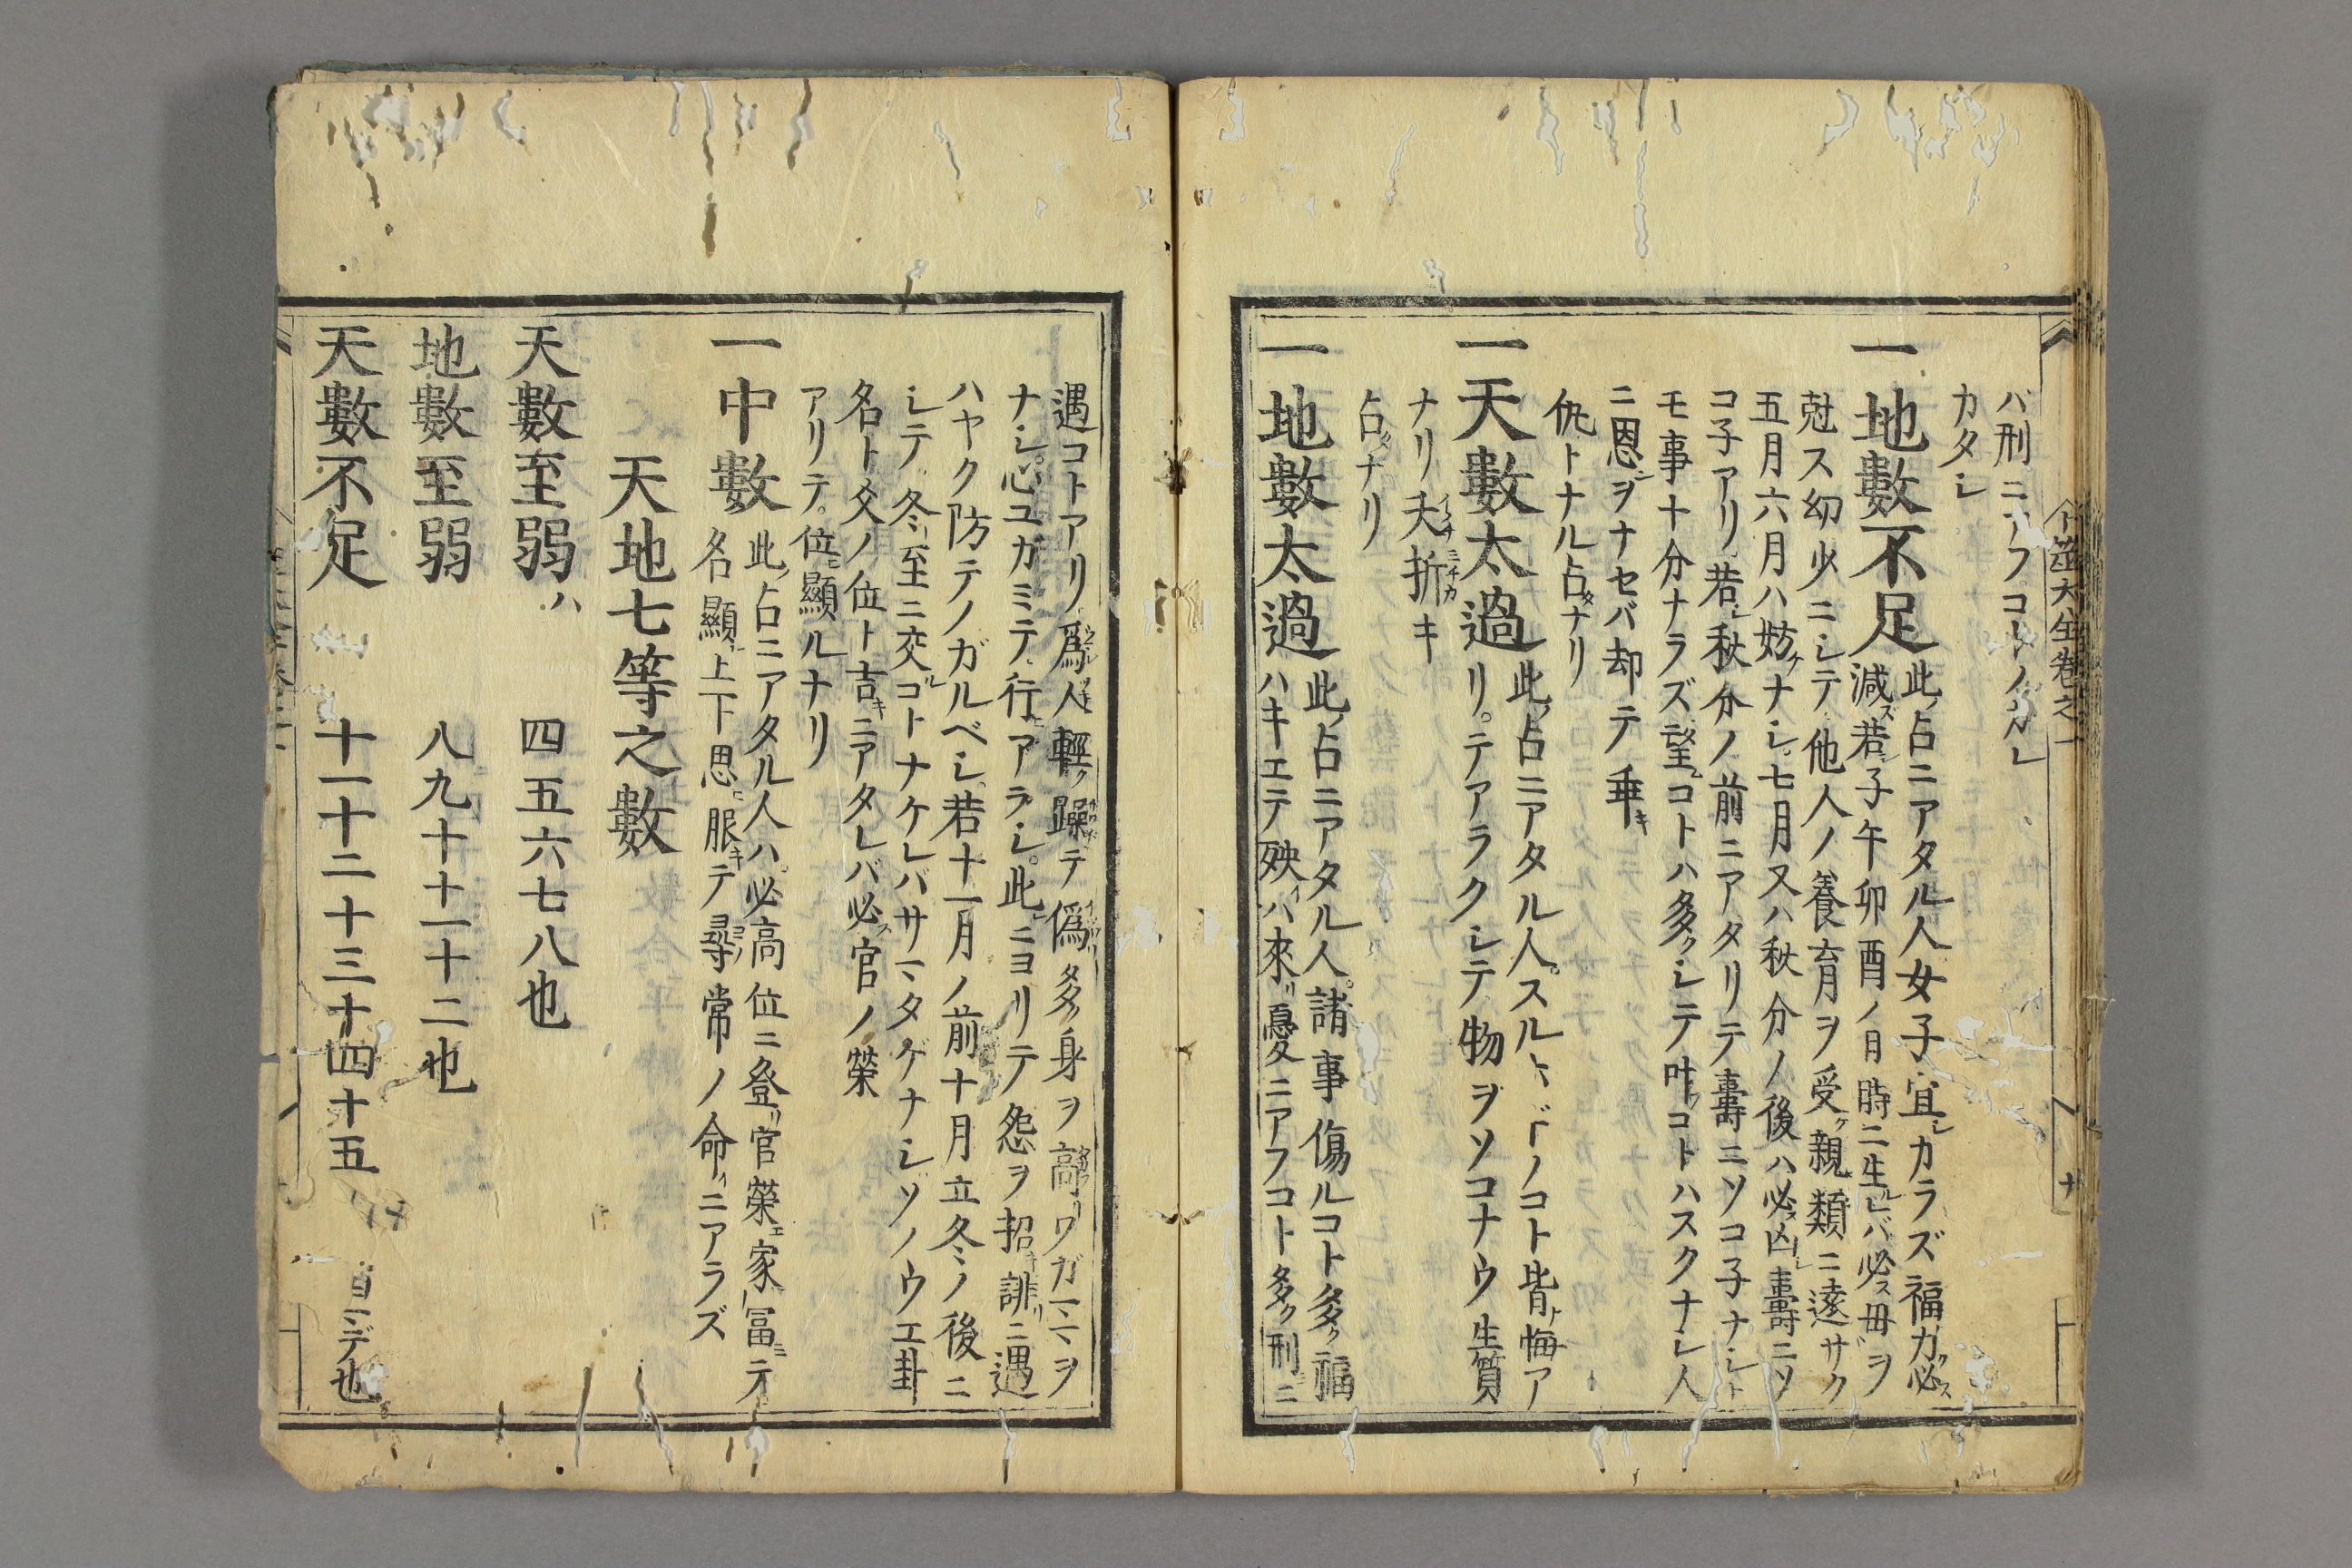 バ刑ニアフコトノガレ
カタシ
一地數不足此占ニアタル人女子宜シカラズ福力必ス
減ズ若シ子午卯酉ノ日時ニ生ルレバ必ス母ヲ
尅ス幼少ニシテ他人ノ養育ヲ受ケ親類ニ遠ザク
五月六月ハ妨ケナシ七月又ハ秋分ノ後ハ必ス凶シ壽ニソ
コ子アリ若シ秋分ノ前ニアタリテ壽ニソコ子ナシト
モ事十分ナラズ望ムコトハ多クシテ叶フコトハスクナシ人
ニ恩ヲナセバ却テ垂キ
仇トナル占ナリ
一天數太過此占ニアタル人スルホドノコト皆悔ア
リ。テアラクシテ物ヲソコナウ生質
ナリ夭折キ
占ナリ
一地數太過此占ニアタル人諸事傷ルコト多ク福
ハキエテ殃イハ來リ憂ニアフコト多ク刑ニ
遇コトアリ爲人輕ク躁テ偽多ク身ヲ高リワガママヲ
ナシ心ユガミテ行アラシ此ニヨリテ怨ヲ招キ誹リニ遇
ハヤク防テノガルベシ若十一月ノ前十月立冬ノ後ニ
シテ冬至ニ交ルコトナケレバサマタゲナシソノウエ卦
名ト爻ノ位ト吉キニアタレバ必ス官ノ榮
アリテ位顯ルナリ
一中數此占ニアタル人ハ必高位ニ登リ官榮エ家冨ミテ
名顯レ上下思ヒ服キテ尋常ノ命ニアラズ
天地七等之數
天數至弱ハ　四五六七八也
地數至弱　八九十十一十二也
天數不足　十一十二十三十四十五　マデ也